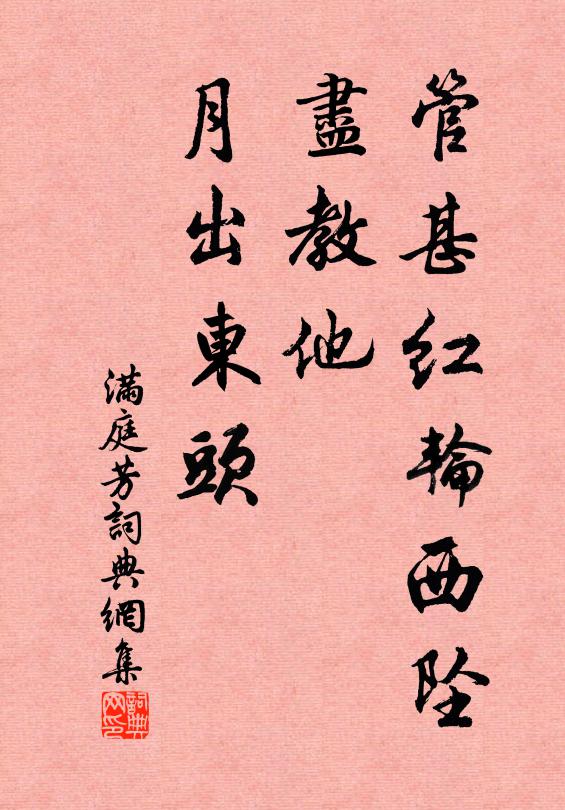 管甚紅輪西墜
盡教他
月出東頭
滿庭芳詞典網集
詞典
网印